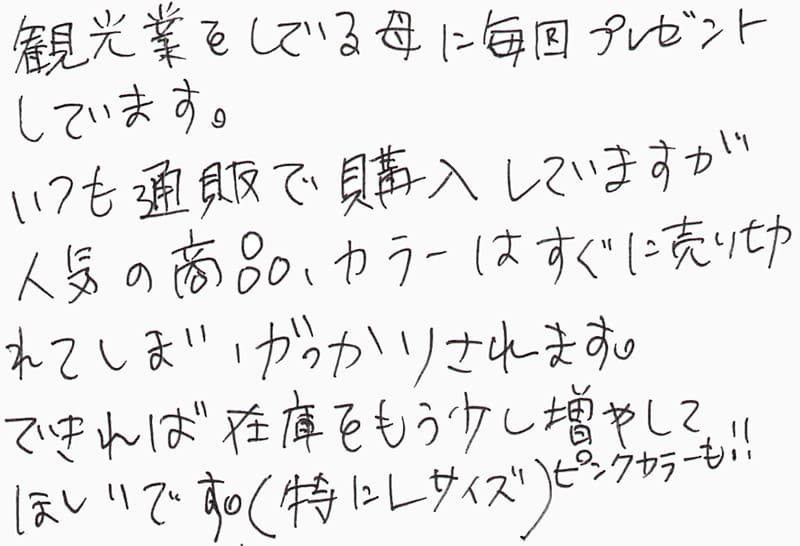 観光業をしている母に毎回プレゼント
しています。
いつも通販で購入していますが
人気の商品、カラーはすぐに売り切
れてしまいがっかりされます。
できれば在庫をもう少し増やして
ほしいです。(特にLサイズ)ピンクカラーも!!